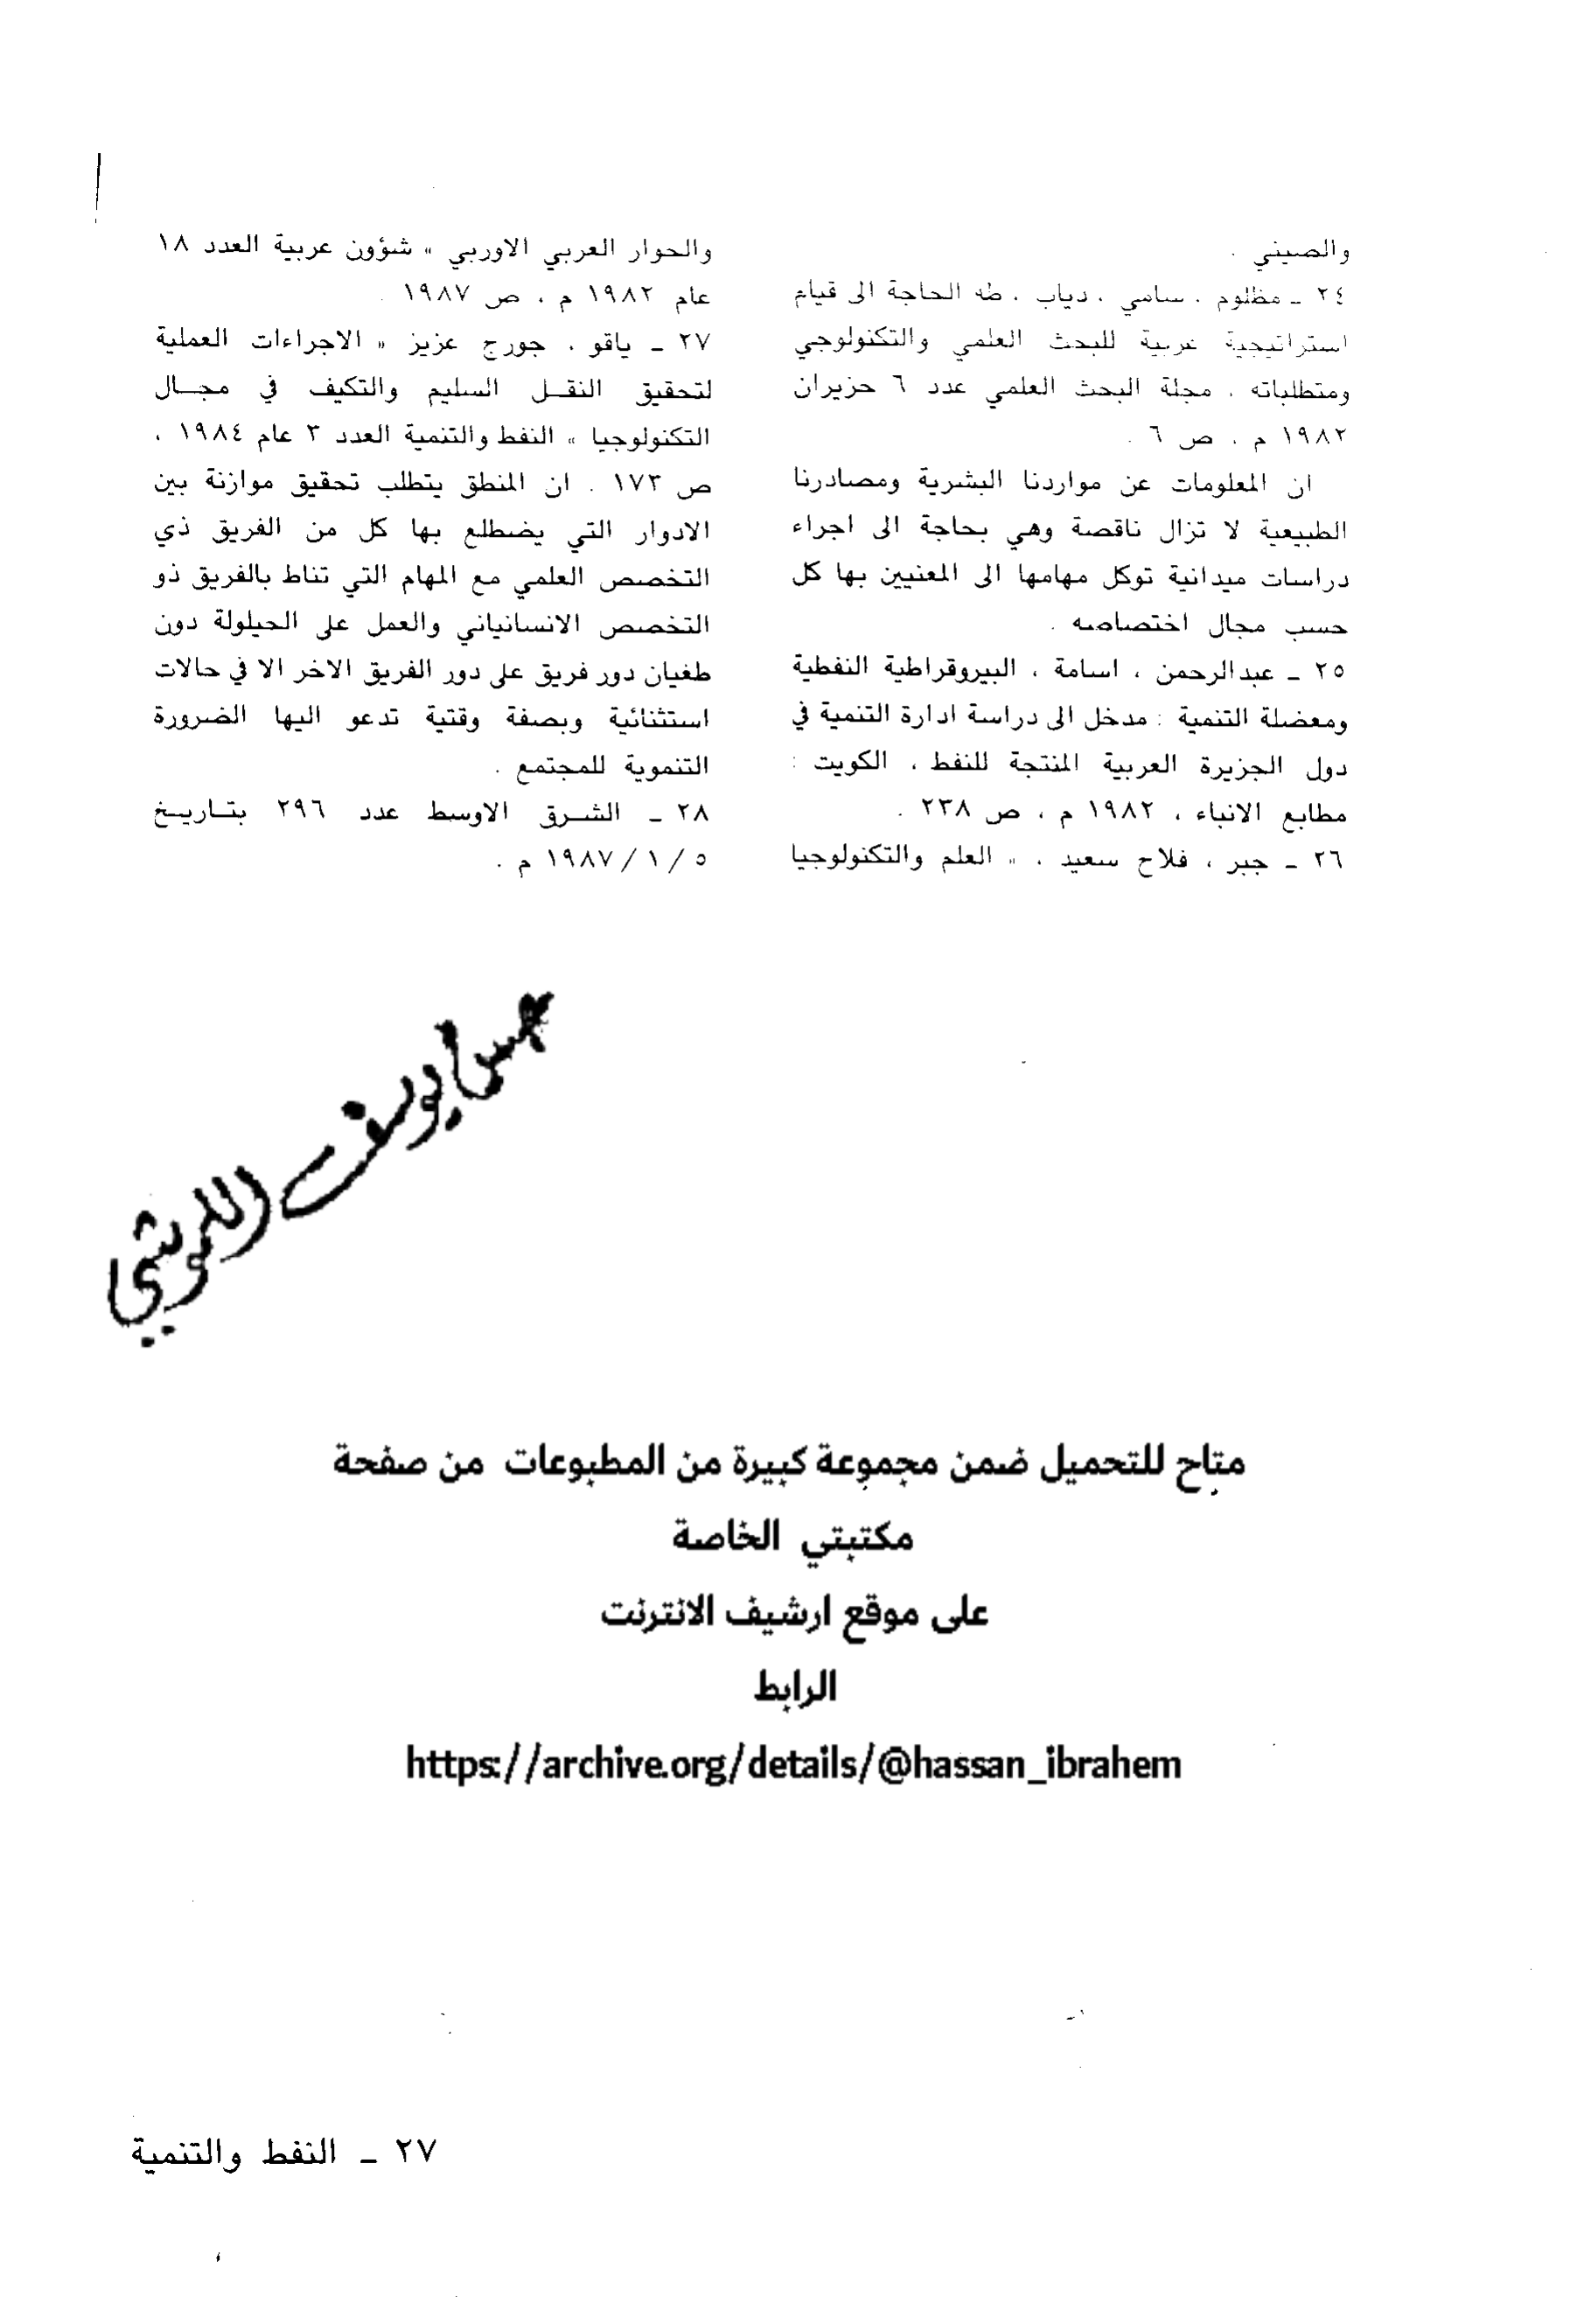 والصيني .
٢٤ ـ مظلوم ، سامي ، دياب ، طه الحاجة الى قيام
استراتيجية عربية للبحث العلمي والتكنولوجي
ومتطلباته ، مجلة البحث العلمي عدد ٦ حزيران
١٩٨٢ م ، ص ٦ .
ان المعلومات عن مواردنا البشرية ومصادرنا
الطبيعية لا تزال ناقصة وهي بحاجة الى اجراء
دراسات ميدانية توكل مهامها الى المعنيين بها كل
حسب مجال اختصاصه .
٢٥ ـ عبدالرحمن ، اسامة ، البيروقراطية النفطية
ومعضلة التنمية : مدخل الى دراسة ادارة التنمية في
دول الجزيرة العربية المنتجة للنفط ، الكويت :
مطابع الانباء ، ١٩٨٢ م ، ص ٢٣٨ .
٢٦ ـ جبر ، فلاح سعيد ، « العلم والتكنولوجيا
والحوار العربي الاوربي » شؤون عربية العدد ١٨
عام ١٩٨٢ م ، ص ١٩٨٧ .
٢٧ ـ ياقو ، جورج عزيز « الاجراءات العملية
لتحقيق النقل السليم والتكيف في مجال
التكنولوجيا » النفط والتنمية العدد ٣ عام ١٩٨٤ ،
ص ١٧٣ . ان المنطق يتطلب تحقيق موازنة بين
الادوار التي يضطلع بها كل من الفريق ذي
التخصص العلمي مع المهام التي تناط بالفريق ذو
التخصص الانسانياني والعمل على الحيلولة دون
طغيان دور فريق على دور الفريق الاخر الا في حالات
استثنائية وبصفة وقتية تدعو اليها الضرورة
التنموية للمجتمع .
٢٨ ـ الشرق الاوسط عدد ٢٩٦ بتاريخ
٥ / ١ / ١٩٨٧ م .
يوسف
متاح للتحميل ضمن مجموعة كبيرة من المطبوعات من صفحة
مكتبتي الخاصة
على موقع ارشيف الانترنت
الرابط
https://archive.org/details/@hassan_ibrahem
٢٧ ـ النفط والتنمية